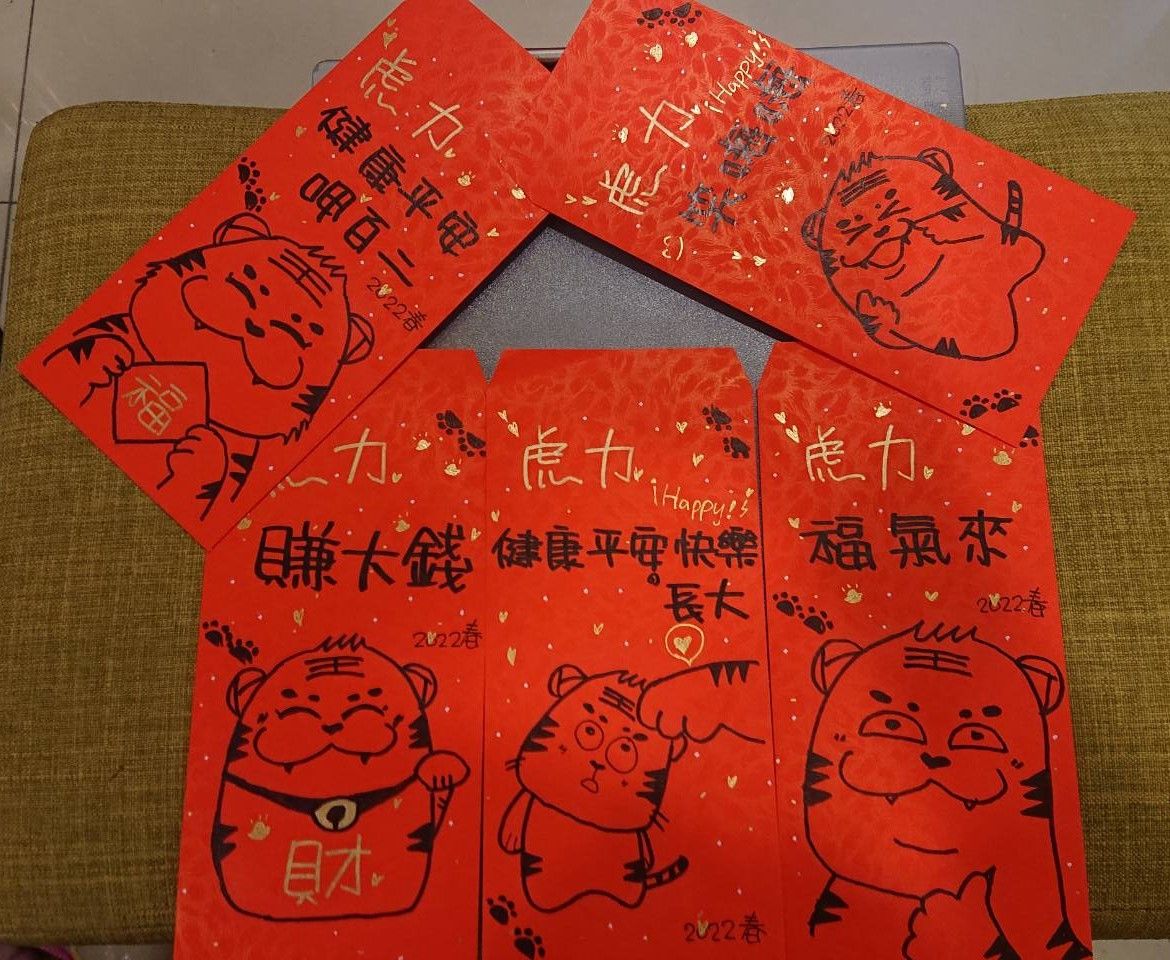 虎力
健康平安
呷百二
2022春
福
虎力
¡Happy!
2022春
力
賺大錢
2022春
財
虎力
¡Happy!
健康平安快樂
長大
2022春
虎力
福氣來
2022春